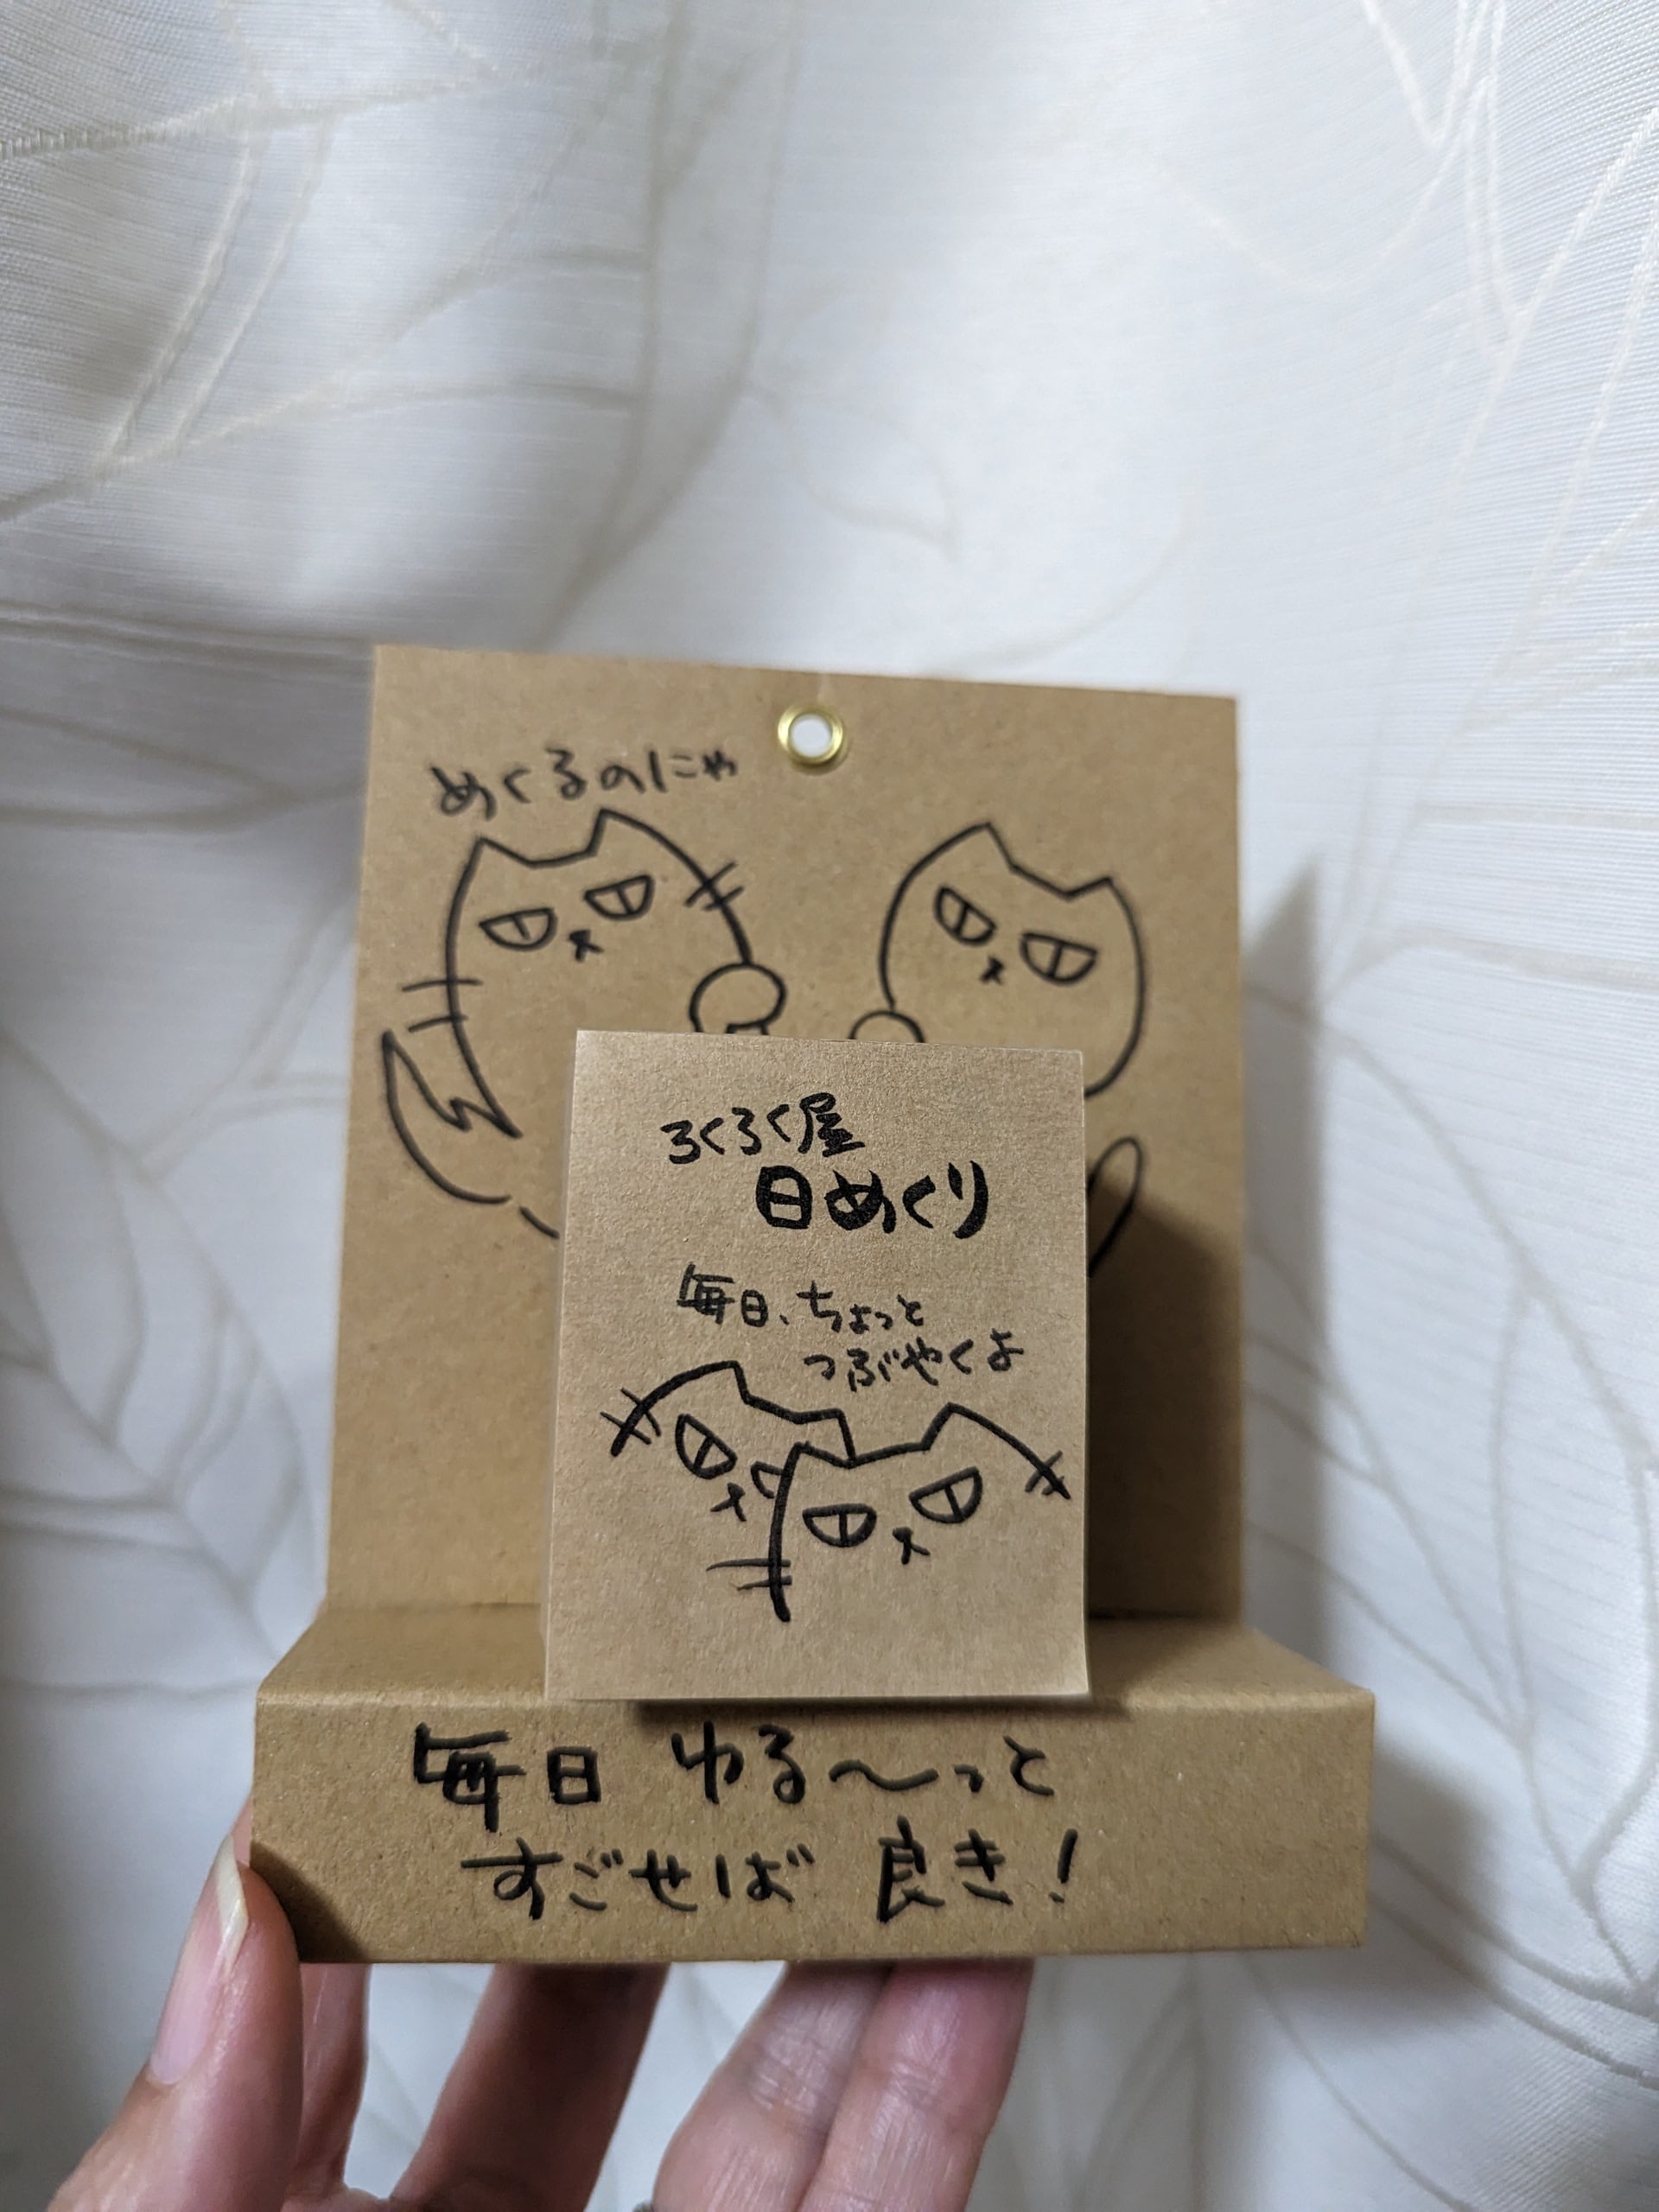 めくるのにゃ
ろくろく屋
日めくり
毎日、ちょっと
つぶやくよ
毎日 ゆる〜っと
すごせば 良き!